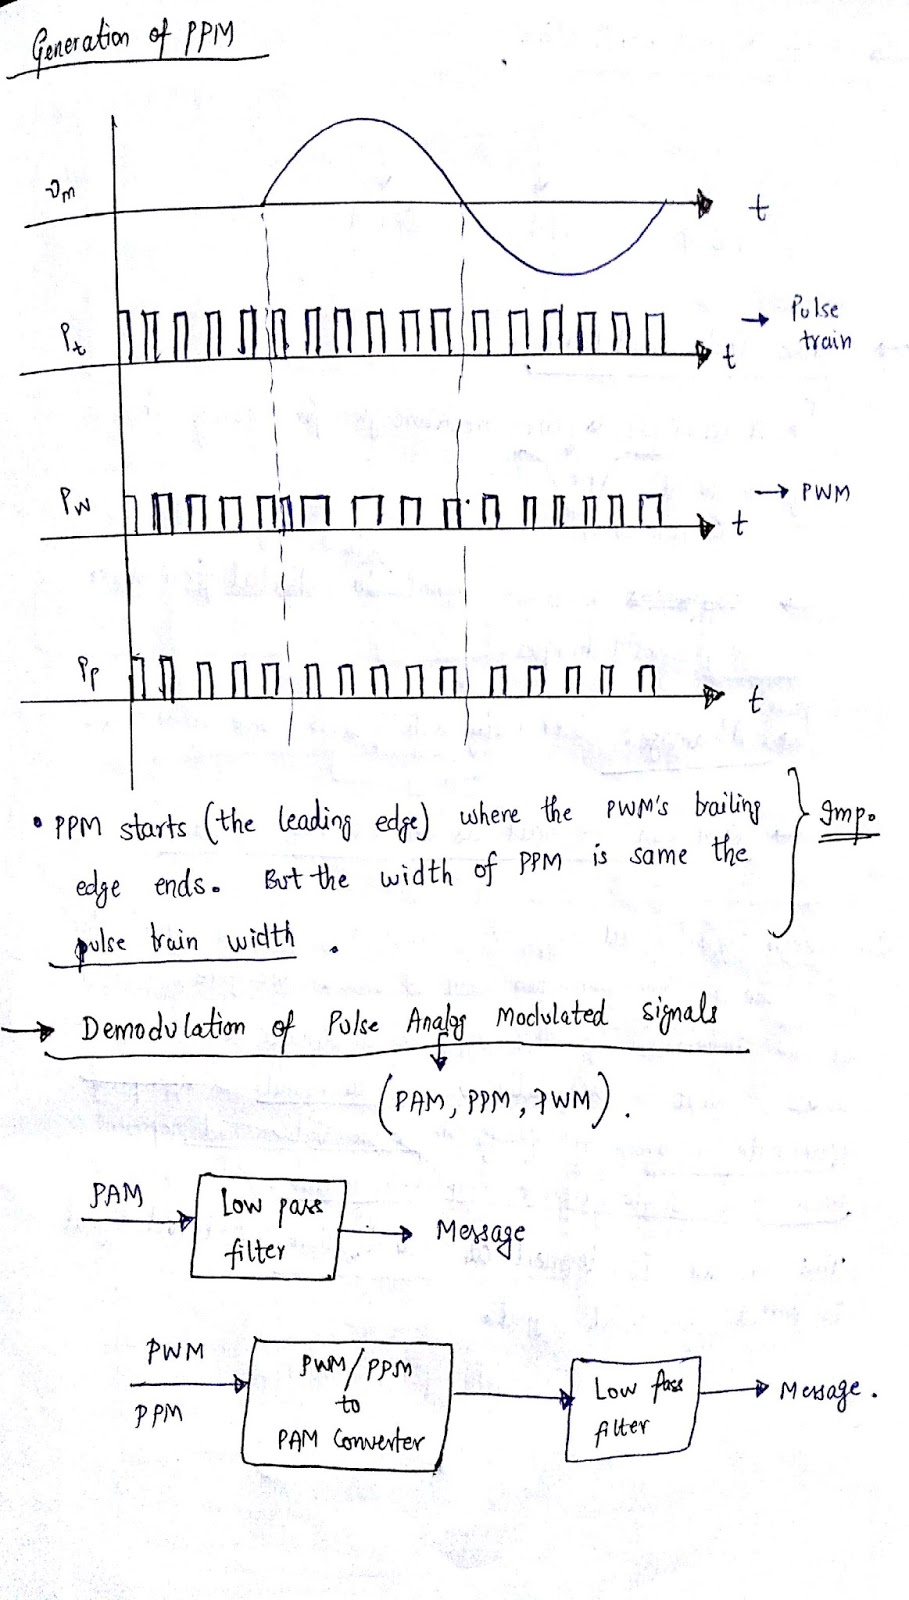 Generation of PPM
vm
t
Pt
t
→ Pulse
train
Pw
t
→ PWM
Pp
t
• PPM starts (the leading edge) where the PWM's bailing
edge ends. But the width of PPM is same the
pulse train width.
Imp.
→ Demodulation of Pulse Analog Modulated signals
(PAM, PPM, PWM).
PAM
Low pass
filter
Message
PWM
PPM
PWM/PPM
to
PAM Converter
Low Pass
filter
Message.